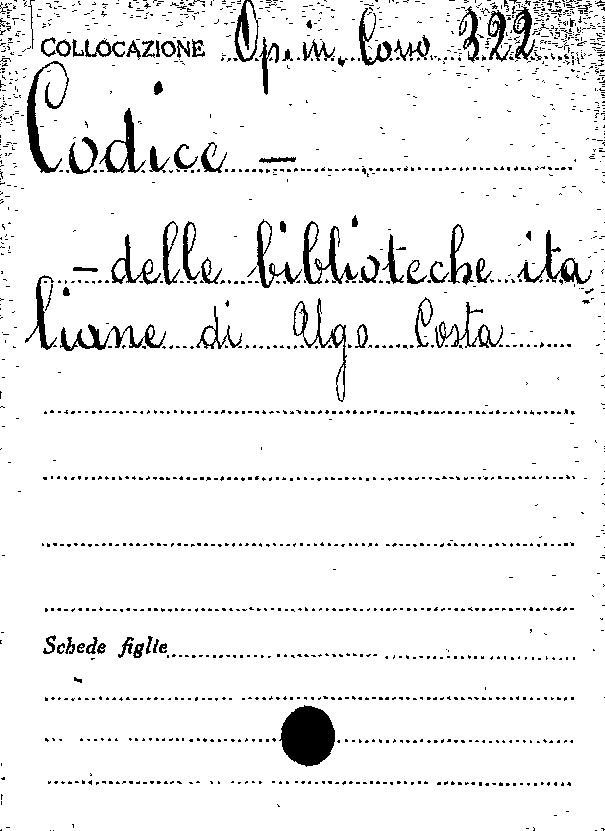 COLLOCAZIONE Op. in. Corso 322
Codice –
– delle biblioteche ita
liane di Algo Costa
Schede figlie